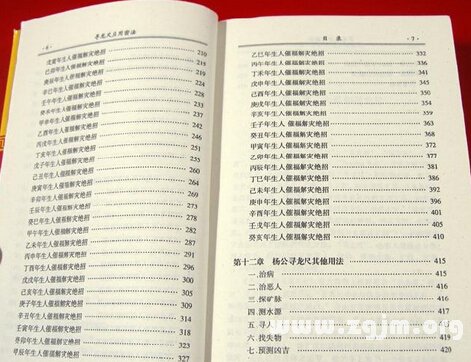 · 6 · 寻龙尺启用密法
戊寅年生人催福解灾绝招 210
己卯年生人催福解灾绝招 215
庚辰年生人催福解灾绝招 220
辛巳年生人催福解灾绝招 224
壬午年生人催福解灾绝招 228
癸未年生人催福解灾绝招 233
甲申年生人催福解灾绝招 238
乙酉年生人催福解灾绝招 242
丙戌年生人催福解灾绝招 246
丁亥年生人催福解灾绝招 251
戊子年生人催福解灾绝招 255
己丑年生人催福解灾绝招 260
庚寅年生人催福解灾绝招 264
辛卯年生人催福解灾绝招 268
壬辰年生人催福解灾绝招 273
癸巳年生人催福解灾绝招 278
甲午年生人催福解灾绝招 282
乙未年生人催福解灾绝招 287
丙申年生人催福解灾绝招 291
丁酉年生人催福解灾绝招 296
戊戌年生人催福解灾绝招 300
己亥年生人催福解灾绝招 305
庚子年生人催福解灾绝招 309
辛丑年生人催福解灾绝招 314
壬寅年生人催福解灾绝招 318
癸卯年生人催福解灾绝招 323
甲辰年生人催福解灾绝招 327
目 录 · 7 ·
乙巳年生人催福解灾绝招 332
丙午年生人催福解灾绝招 336
丁未年生人催福解灾绝招 341
戊申年生人催福解灾绝招 345
己酉年生人催福解灾绝招 350
庚戌年生人催福解灾绝招 354
辛亥年生人催福解灾绝招 359
壬子年生人催福解灾绝招 363
癸丑年生人催福解灾绝招 368
甲寅年生人催福解灾绝招 372
乙卯年生人催福解灾绝招 377
丙辰年生人催福解灾绝招 381
丁巳年生人催福解灾绝招 386
己未年生人催福解灾绝招 391
庚申年生人催福解灾绝招 396
辛酉年生人催福解灾绝招 401
壬戌年生人催福解灾绝招 405
癸亥年生人催福解灾绝招 410
第十二章 杨公寻龙尺其他用法 415
一、治病 415
二、治恶人
三、探矿脉
四、测水源
五、寻人
六、找失物
七、预测凶吉 420
www.zgjm.org